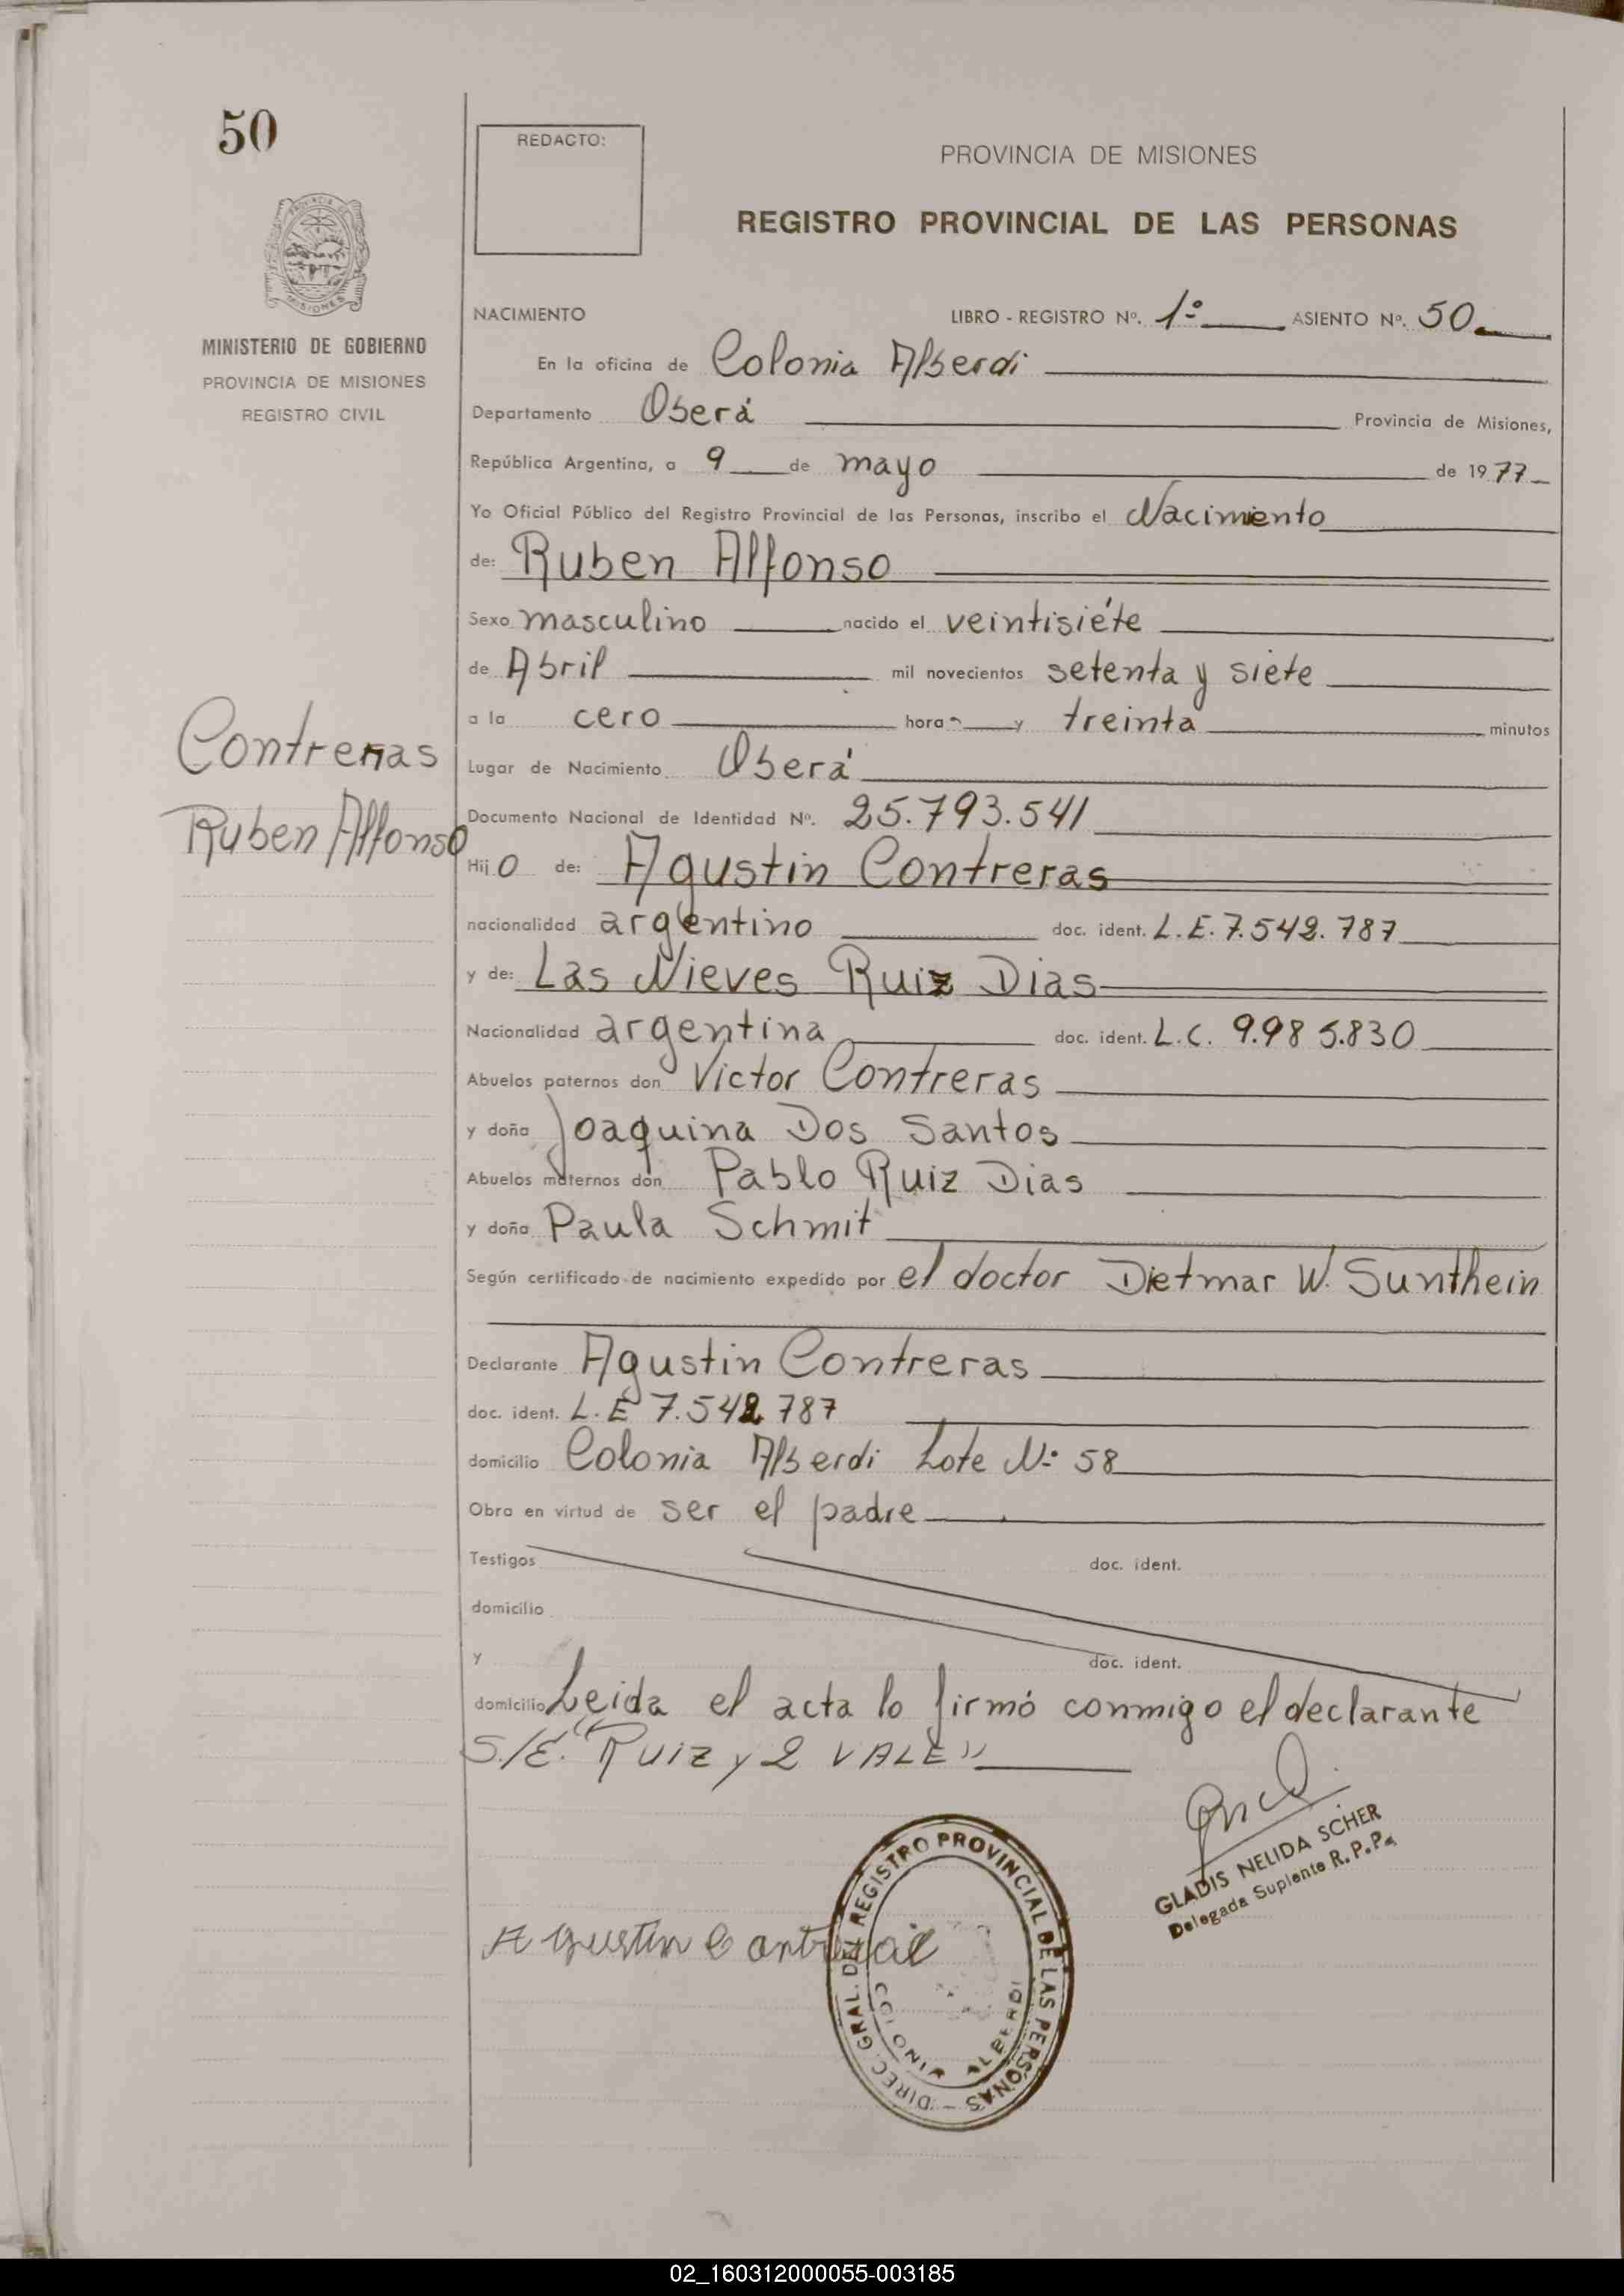 50
PROVINCIA DE MISIONES
MINISTERIO DE GOBIERNO
PROVINCIA DE MISIONES
REGISTRO CIVIL
Contreras
Ruben Alfonso
REDACTO:
PROVINCIA DE MISIONES
REGISTRO PROVINCIAL DE LAS PERSONAS
NACIMIENTO LIBRO - REGISTRO Nº. 1º ASIENTO Nº. 50
En la oficina de Colonia Alberdi
Departamento Oberá Provincia de Misiones,
República Argentina, a 9 de mayo de 1977
Yo Oficial Público del Registro Provincial de las Personas, inscribo el Nacimiento
de: Ruben Alfonso
Sexo masculino nacido el veintisiéte
de Abril mil novecientos setenta y siete
a la cero hora y treinta minutos
Lugar de Nacimiento Oberá
Documento Nacional de Identidad Nº. 25.793.541
Hijo de: Agustin Contreras
nacionalidad argentino doc. ident. L.E. 7.542.787
y de: Las Nieves Ruiz Dias
Nacionalidad argentina doc. ident. L.C. 9.985.830
Abuelos paternos don Victor Contreras
y doña Joaquina Dos Santos
Abuelos maternos don Pablo Ruiz Dias
y doña Paula Schmit
Según certificado de nacimiento expedido por el doctor Dietmar W. Sunthein
Declarante Agustin Contreras
doc. ident. L.E 7.542.787
domicilio Colonia Alberdi Lote Nº 58
Obra en virtud de ser el padre
Testigos doc. ident.
domicilio
y doc. ident.
domicilio Leida el acta lo firmó conmigo el declarante
S/E. "Ruiz y 2 VALE"
GLADIS NELIDA SCHER
Delegada Suplente R.P.P.
Agustin Contreras
DIREC. GRAL. DEL REGISTRO PROVINCIAL DE LAS PERSONAS
COLONIA ALBERDI
02_160312000055-003185